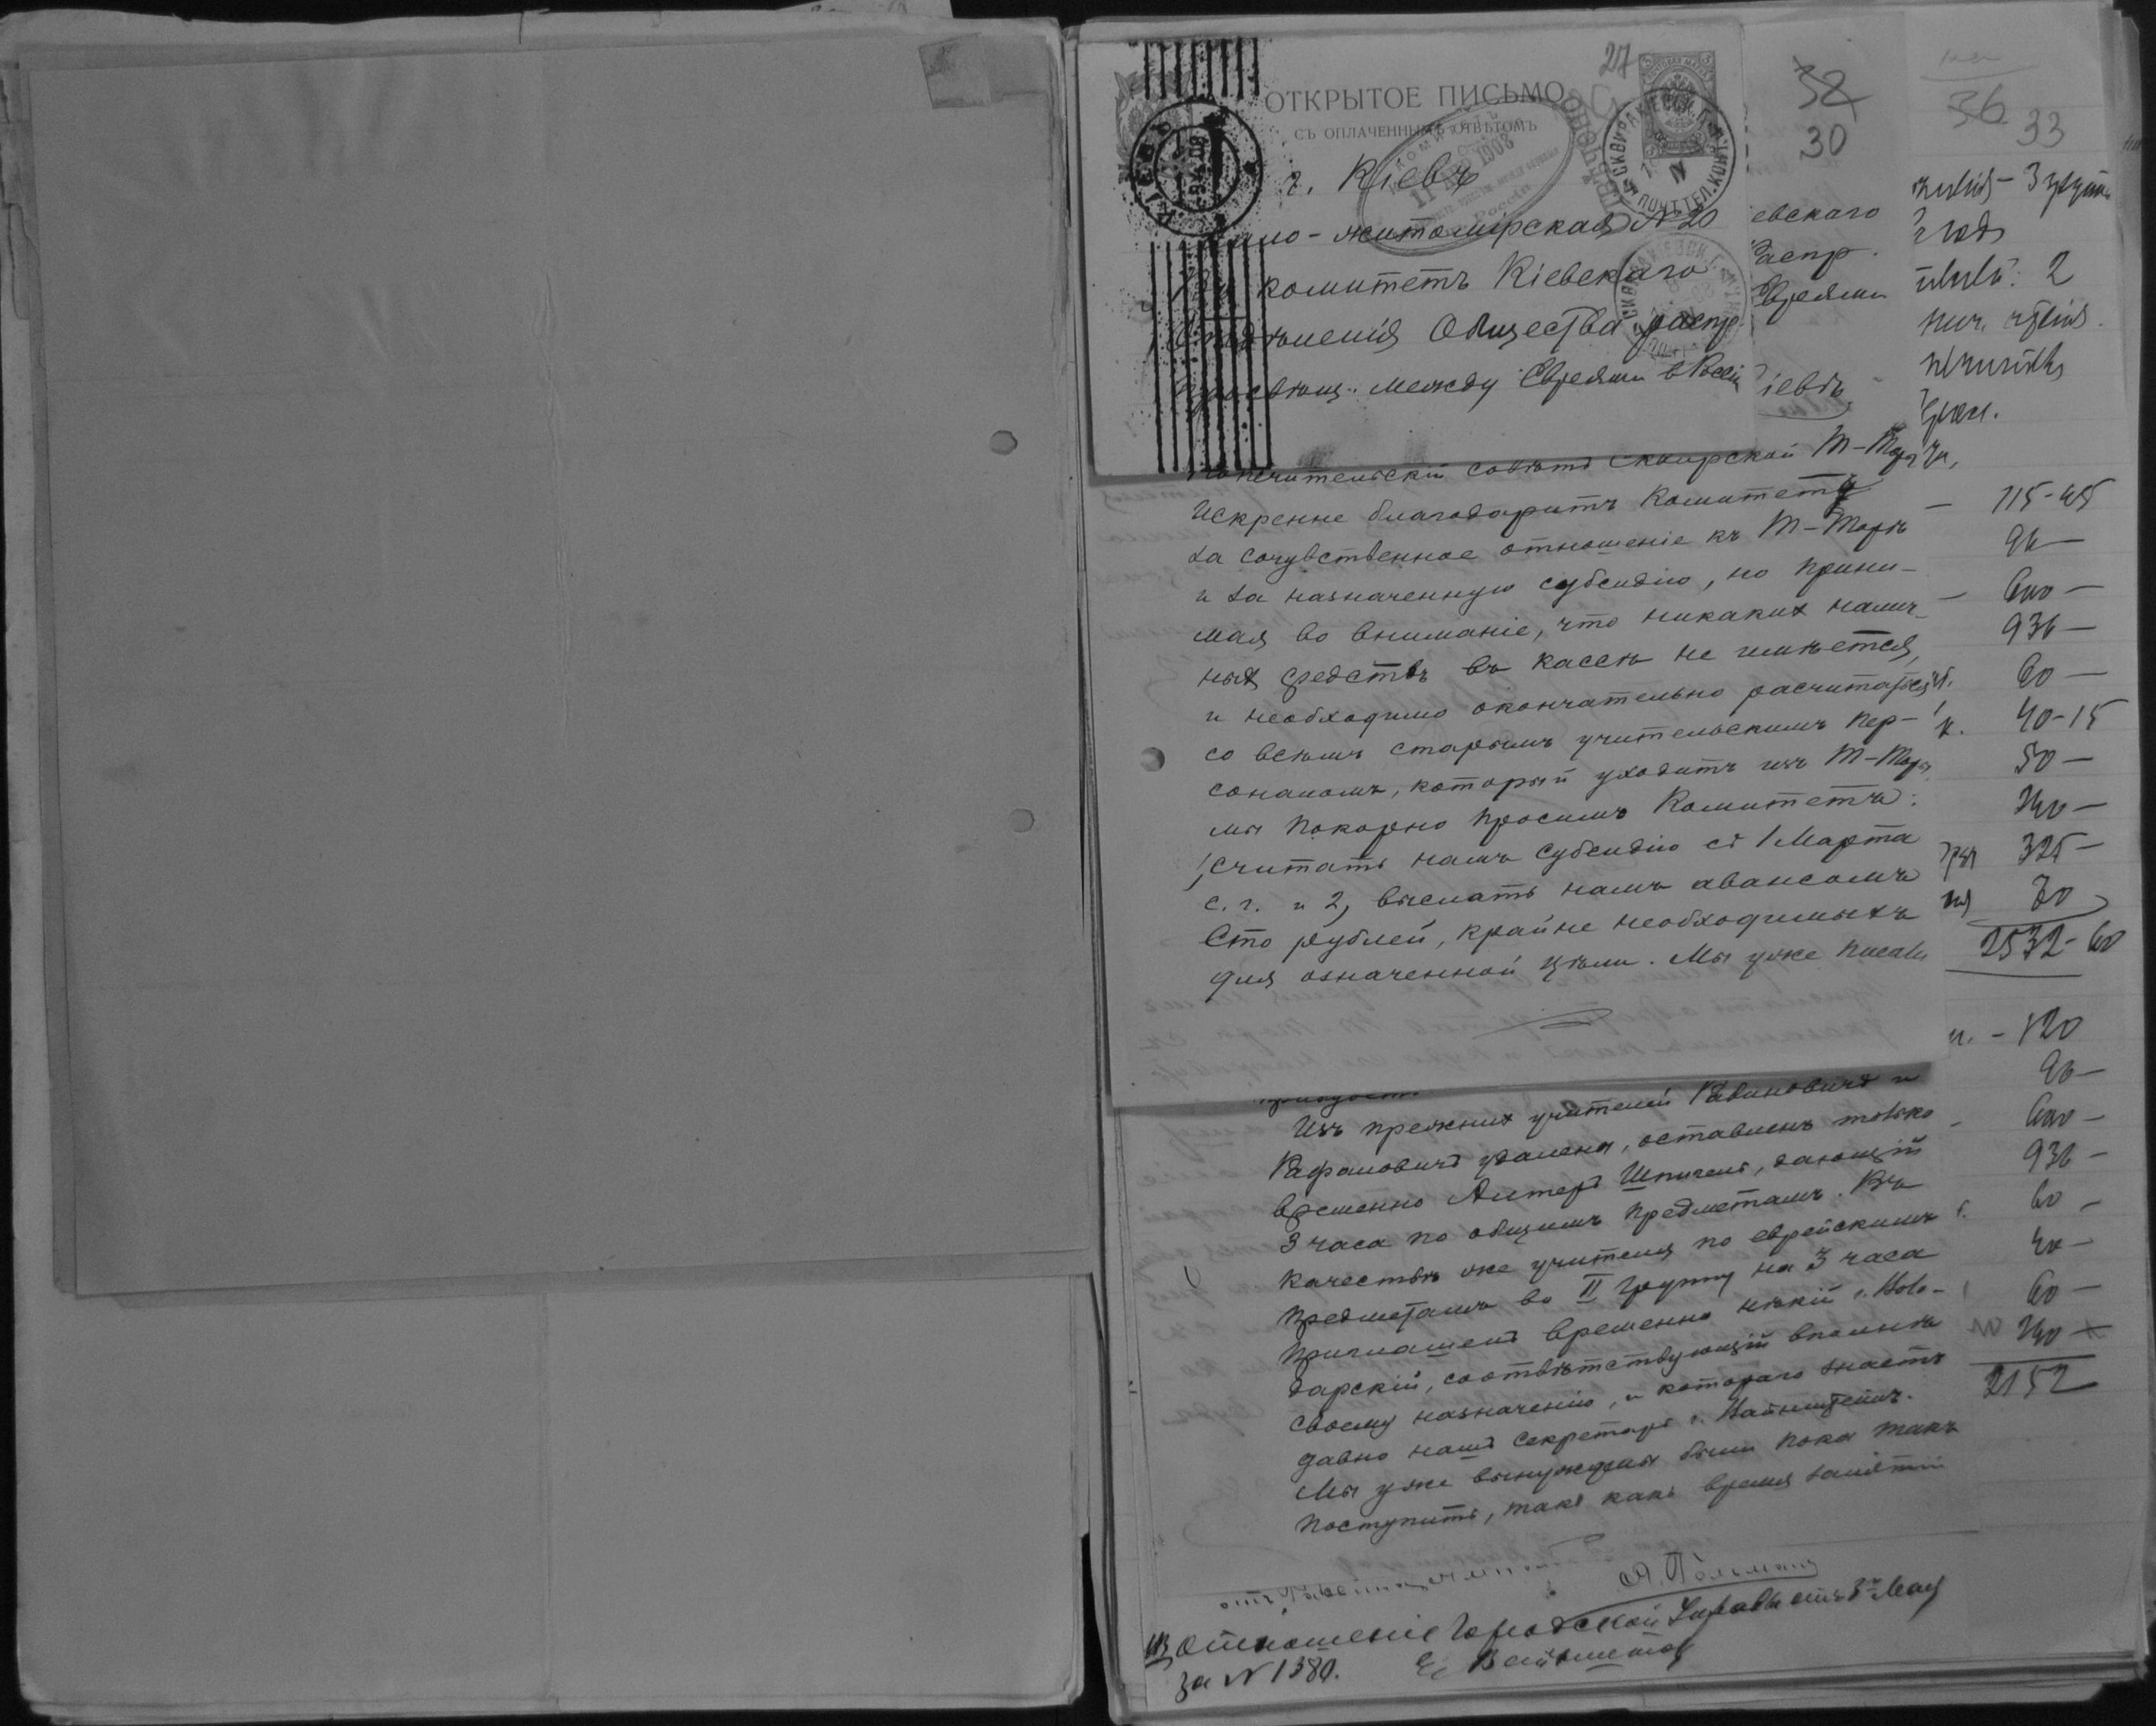 27
ОТКРЫТОЕ ПИСЬМО
СЪ ОПЛАЧЕННЫМЪ ОТВѢТОМЪ
г. Кіевъ
мало-житомірская №20
Въ комитетъ Кіевскаго
Отдѣленія Общества распр.
просвѣщ. между Евреями в Россіи
КІЕВЪ
1908
32
30
евскаго
Распр.
Евреями
іевѣ
36
33
Попечительскій совѣтъ Сквирской Т-Торы
Искренне благодаритъ Комитетъ
за сочувственное отношеніе къ Т-Торѣ
и за назначенную субсидію, но прини-
мая во вниманіе, что никаких налич-
ных средствъ въ кассѣ не имѣется,
и необходимо окончательно расчитаться
со всѣмъ старымъ учительскимъ пер-
соналомъ, который уходитъ изъ Т-Торы
мы покорно просимъ Комитетъ:
1, считать намъ субсидію съ 1 Марта
с. г. и 2, выслать намъ авансомъ
Сто рублей, крайне необходимыхъ
для означенной цѣли. Мы уже писали
115-45
96-
600-
936-
60-
40-15
50-
240-
325-
70
2532-60
Изъ прежних учителей Рабиновичъ и
Рафаловичъ удалены, оставленъ только
временно Алтеръ Шпигель, дающій
3 часа по общимъ предметамъ. Въ
качествѣ же учителя по еврейскимъ
предметамъ во II группу на 3 часа
приглашенъ временно нѣкій г. Воло-
дарскій, соотвѣтствующій вполнѣ
своему назначенію, и котораго знаетъ
давно нашъ секретарь г. Вайнштейнъ.
Мы уже вынуждены были пока такъ
поступить, такъ какъ время занятій
- 120
96-
600-
936-
60-
40-
60-
240-
2152
отношеніе Городской Управы отъ 3го Мая
за №1380.